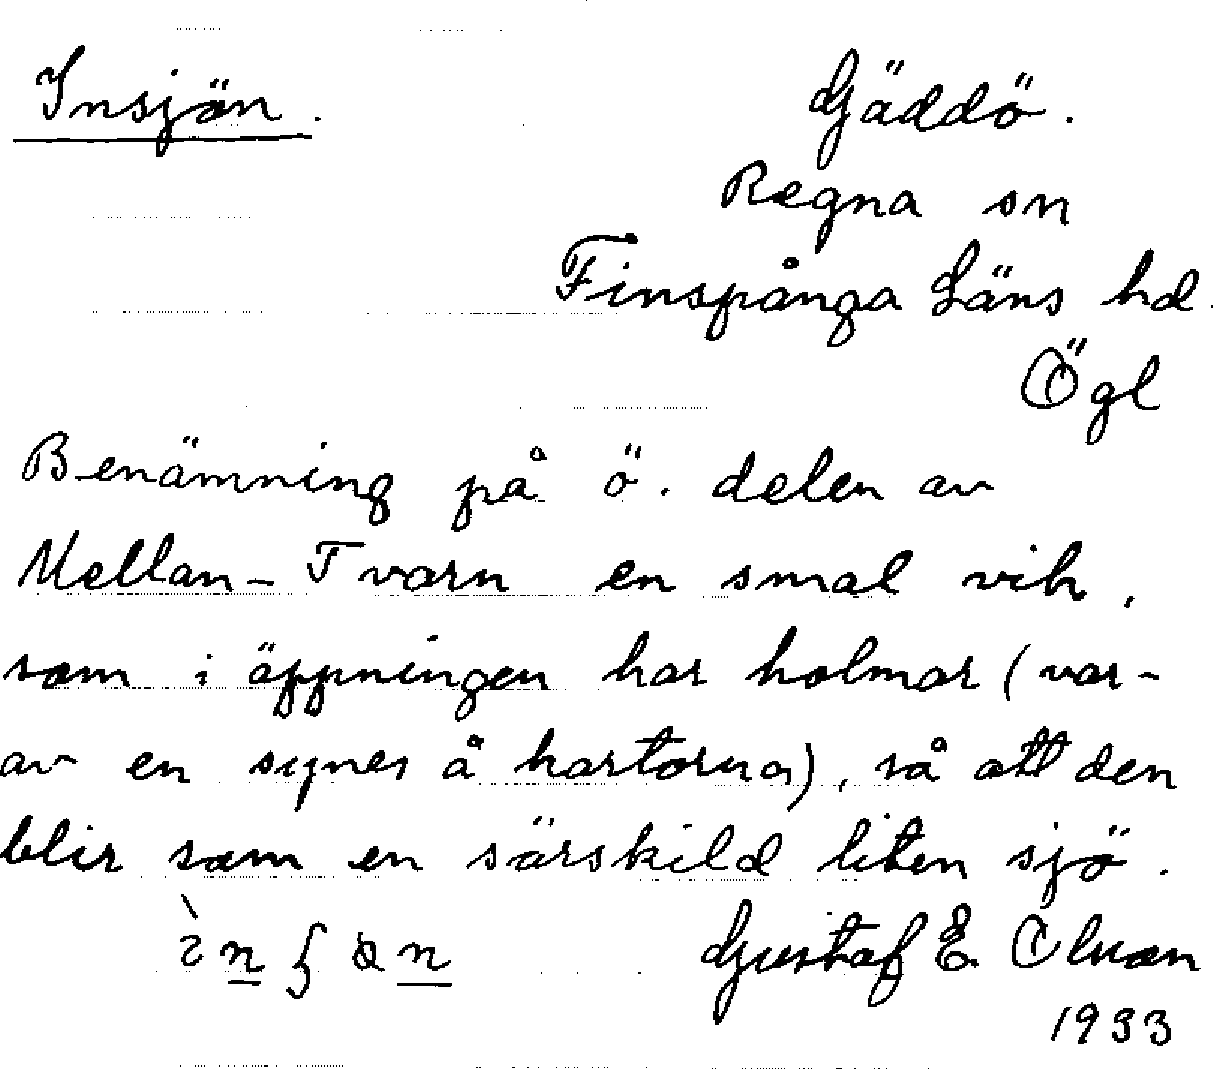 Insjön.
Gäddö.
Regna sn
Finspånga Läns hd.
Ögl
Benämning på ö. delen av
Mellan-Tvarn en smal vik,
som i öppningen har holmar (var-
av en synes å kartorna), så att den
blir som en särskild liten sjö.
Gustaf E.
1933